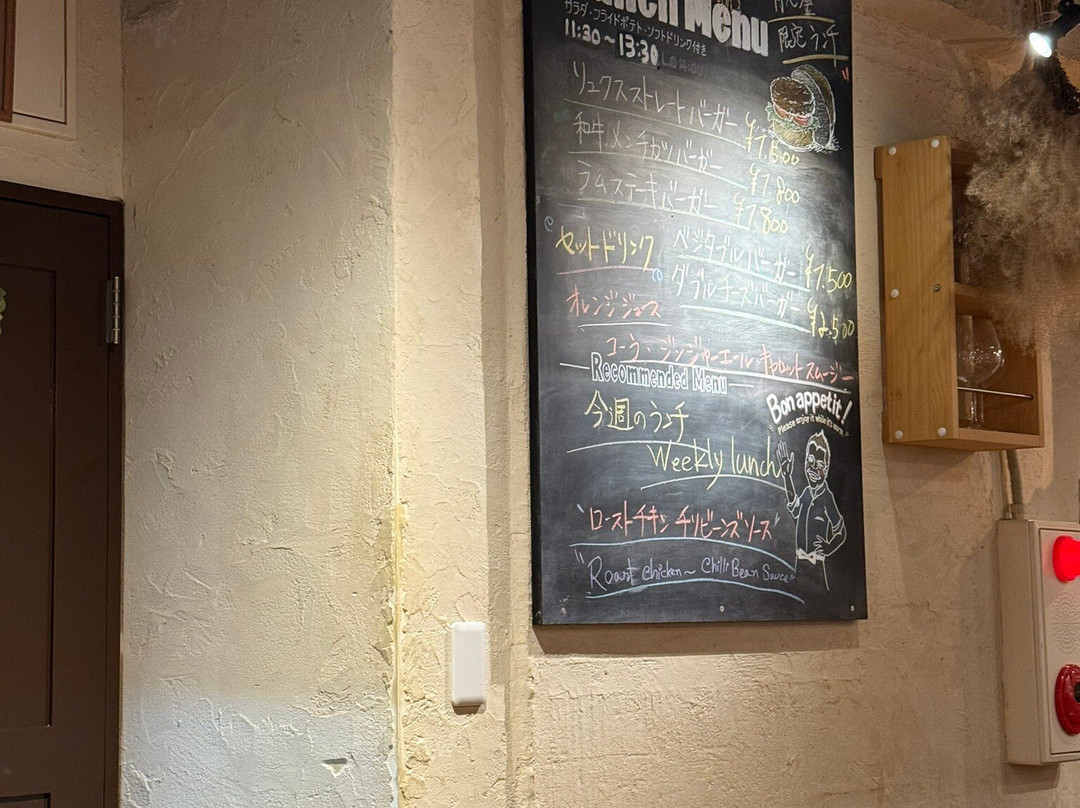 Lunch Menu
サラダ・フライドポテト・ソフトドリンク付き
11:30～13:30
限定ランチ
リュクスストレートバーガー ¥1.500
和牛メンチカツバーガー ¥1.800
ラムステーキバーガー ¥1.800
セットドリンク
ベジタブルバーガー ¥1.500
ダブルチーズバーガー ¥2.500
オレンジジュース
コーラ・ジンジャーエール・キャロットスムージー
Recommended Menu
今週のランチ
Weekly lunch
Bon appetit!
Please enjoy it while it's warm
"ローストチキン チリビーンズソース"
"Roast chicken~ Chilli Bean Sauce"